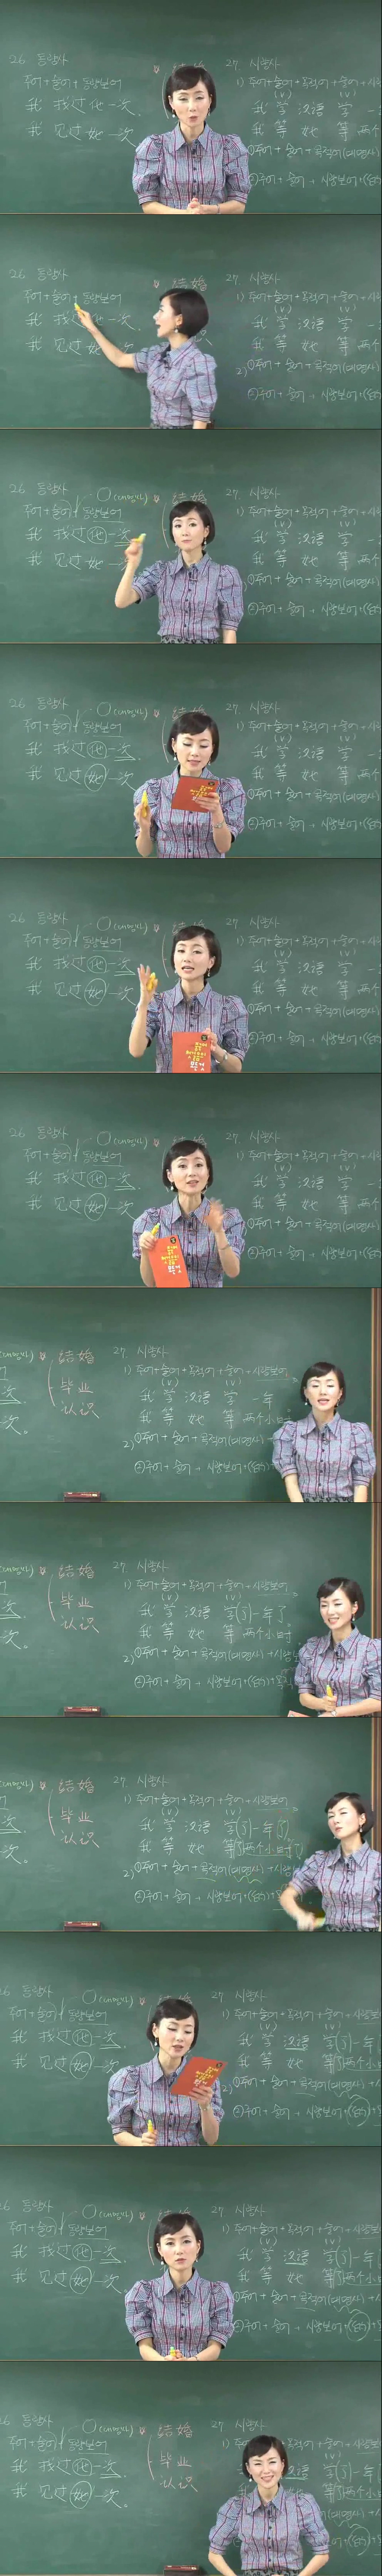 26 동량사
주어+술어+동량보어
我 找过他一次。
我 见过她一次。
O(대명사)
结婚
毕业
认识
27 시량사
1) 주어+술어+목적어+술어+시량보어
(V) (V)
我 学 汉语 学(了)一年了
我 等 她 等(了)两个小时了
2) ①주어+술어+목적어(대명사)+시량
②주어+술어+시량보어+(的)+목적